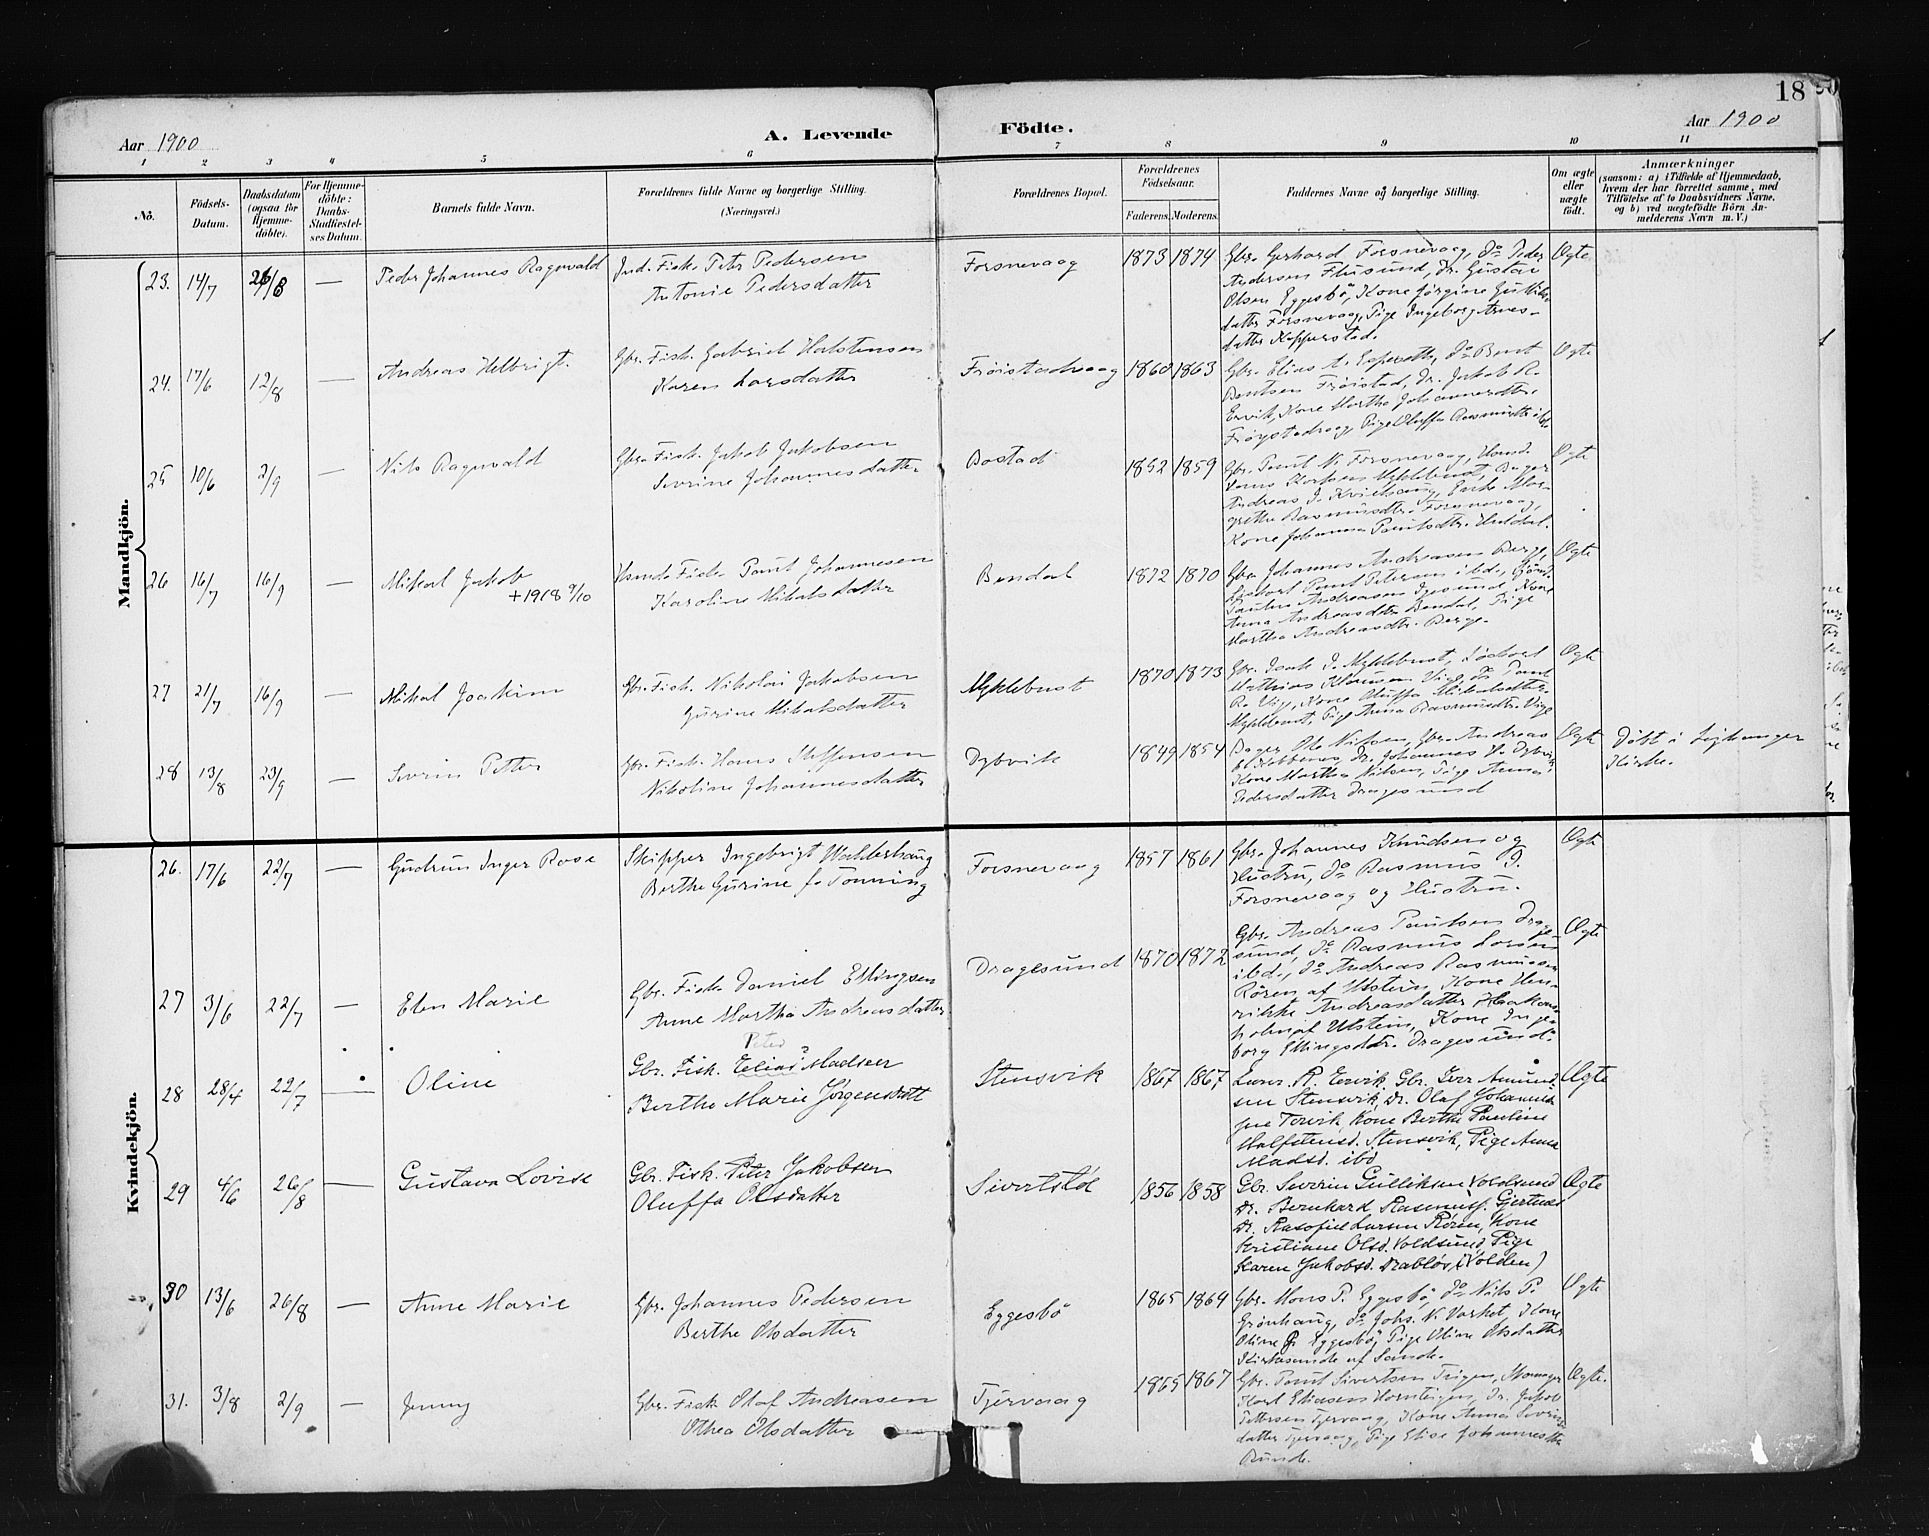 18
Aar 1900
A. Levende
Födte.
Aar 1900
1 2 3 4 5 6 7 8 9 10 11
No.
Födsels-Datum.
Daabsdatum (ogsaa for Hjemme-döbte).
For Hjemme-döbte: Daabs-Stadfæstel-ses Datum.
Barnets fulde Navn.
Forældrenes fulde Navne og borgerlige Stilling. (Næringsvei.)
Forældrenes Bopæl.
Forældrenes Födselsaar.
Faderens. Moderens.
Faddernes Navne og borgerlige Stilling.
Om ægte eller uægte födt.
Anmærkninger
(saasom: a) i Tilfælde af Hjemmedaab,
hvem der har forrettet samme, med
Tilföielse af to Daabsvidners Navne,
og b) ved uægtefödte Börn An-
melderens Navn m. V.)
Mandkjön.
23. 14/7 26/8 — Peder Johannes Ragnvald
Ind. Fisk. Peter Pedersen
Antonie Pedersdatter
Fosnevaag 1873 1874
Gbr. Gerhard Fosnevaag, Do Peder
Andersen Flusund, Dr. Gustav
Olsen Eggesbö, Kone Jørgine
datter Fosnevaag, Pige Ingeborg Arnes-
datter Kopperstad.
Ægte
24. 17/6 12/8 — Andreas Helbrigt.
Gbr. Fisk. Gabriel Halstensen
Karen Larsdatter
Frøistadvaag 1860 1863
Gbr. Elias A. Do Bernt
Berntsen Frøistad, Dr. Jakob R.
Ervik, Kone Martha Johannesdtter.
Frøystadvaag, Pige Oluffa Rasmusdtr ibd.
Ægte
25 10/6 2/9 — Nils Ragnvald
Gbr. Fisk. Jakob Jakobsen
Severine Johannesdatter
Bostad 1852 1859
Gbr. Paul N. Fosnevaag, Hand.
Myklebust, Bager
Andreas J. Kvilhaug, Enke Mar-
grethe Rasmusdtr. Fosnevaag,
Kone Johanna Paulsdtr.
Ægte
26 16/7 16/9 — Mikal Jakob
+ 1918 9/10
Husmd. Fisk. Paul Johannesen
Karoline Mikalsdatter
Bendal 1872 1870
Gbr. Johannes Andreasen Berge,
Paul Petersen ibd.,
Andreasen Igesund, Kone
Anna Andreasdtr. Bendal, Pige
Martha Andreasdtr. Berge.
Ægte
27 21/7 16/9 — Mikal Joakim
Gbr. Fisk. Nikolai Jakobsen
Gurine Mikalsdatter
Myklebust 1870 1873
Gbr. Isak J. Myklebust,
Mathias Vige, Do Paul
R. Vige, Kone Oluffa Mikalsdatter
Myklebust, Pige Anna Rasmusdtr. Vige
Ægte
28 13/8 23/9 — Severin Petter
Gbr. Fisk. Hans Steffensen
Nikoline Johannesdatter
Dybvik 1849 1854
Bager Ole Nilsen, Gbr. Andreas
Dr. Johannes H. Dybvik,
Kone Martha Nilsen, Pige Anna
Pedersdatter Dragesund
Ægte
Döbt i Leikanger
Kirke.
Kvindekjön.
26. 17/6 22/7 — Gudrun Inger Rose
Skipper Ingebrigt Walderhaug
Berthe Gurine f. Tonning
Fosnevaag 1857 1861
Gbr. Johannes Knudsen og
Hustru, Do Rasmus J.
Fosnevaag og Hustru.
Ægte
27 3/6 22/7 — Elen Marie
Gbr. Fisk. Daniel Ellingsen
Anne Martha Andreasdatter
Dragesund 1870 1872
Gbr. Andreas Paulsen Drage-
sund, Do Rasmus Larsen
ibd., Do Andreas Rasmussen
Røren af Ulstein, Kone Hen-
rikke Andreasdatter Haakons-
holm af Ulstein, Kone Inge-
borg Ellingsdtr. Dragesund.
Ægte
28 28/4 22/7 — Oline
Peter ?
Gbr. Fisk. Elias Madsen
Berthe Marie Jørgensdatt
Stensvik 1867 1867
Lærer R. Ervik, Gbr. Iver Amund-
sen Stensvik, Dr. Olaf Johannes-
sen Tervik, Kone Berthe Pauline
Halfstensd. Stensvik, Pige Anna
Madsd. ibd
Ægte
29 4/6 26/8 — Gustava Lovise
Gbr. Fisk. Peter Jakobsen
Oluffa Olsdatter
Sivertstöl 1856 1858
Gbr. Severin Gulliksen Voldsund
Dr. Bernhard Rasmusf. Gjertnes
Dr. Larsen Røren, Kone
Kristiane Olsd. Voldsund, Pige
Karen Jakobsd. Drabløs, (Volden)
Ægte
30 13/6 26/8 — Anne Marie
Gbr. Johannes Pedersen
Berthe Olsdatter
Eggesbö 1865 1864
Gbr. Mons P. Eggesbö, Do Nils P.
Grönhaug, Do Johs. N. Varhol, Kone
Oline P. Eggesbö, Pige Oline Olsdatter
Kirkesunde af Sande.
Ægte
31. 3/8 2/9 — Jenny
Gbr. Fisk. Olaf Andreasen
Othea Olsdatter
Tjørvaag 1865 1867
Gbr. Paul Sivertsen
Karl Eliasen Dr. Jakob
Pettersen Tjørvaag, Kone Anna Severins-
datter Tjørvaag, Pige Elise Johannesdtr
Runde.
Ægte.